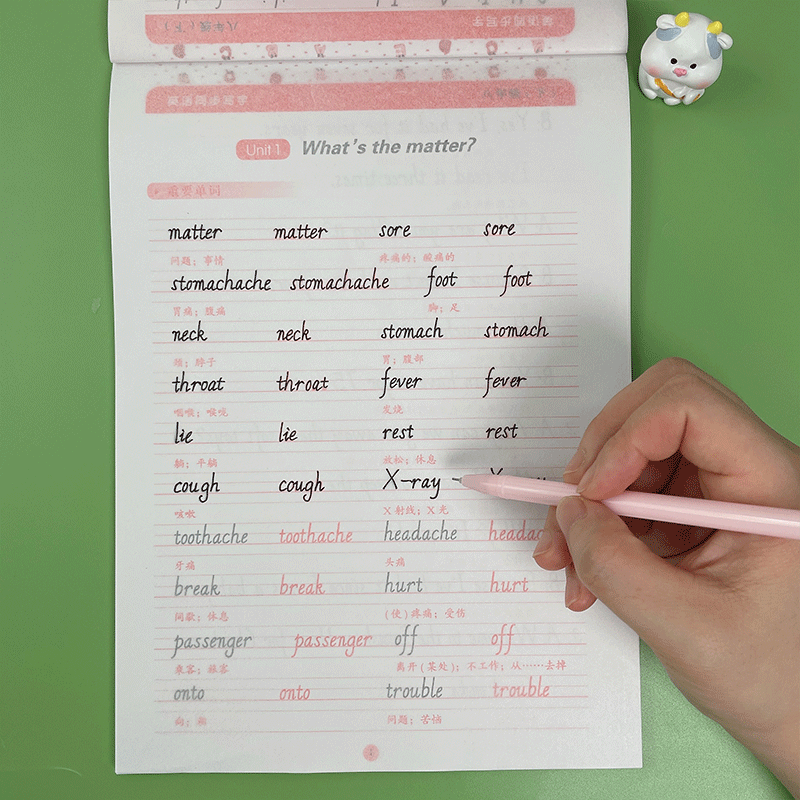 Unit 1 What's the matter?
重要单词
matter matter sore sore
问题；事情 疼痛的；酸痛的
stomachache stomachache foot foot
胃痛；腹痛 脚；足
neck neck stomach stomach
颈；脖子 胃；腹部
throat throat fever fever
咽喉；喉咙 发烧
lie lie rest rest
躺；平躺 放松；休息
cough cough X-ray
咳嗽 X射线；X光
toothache toothache headache
牙痛 头痛
break break hurt hurt
间歇；休息 (使)疼痛；受伤
passenger passenger off off
乘客；旅客 离开(某处)；不工作；从……去掉
onto onto trouble trouble
向；朝 问题；苦恼